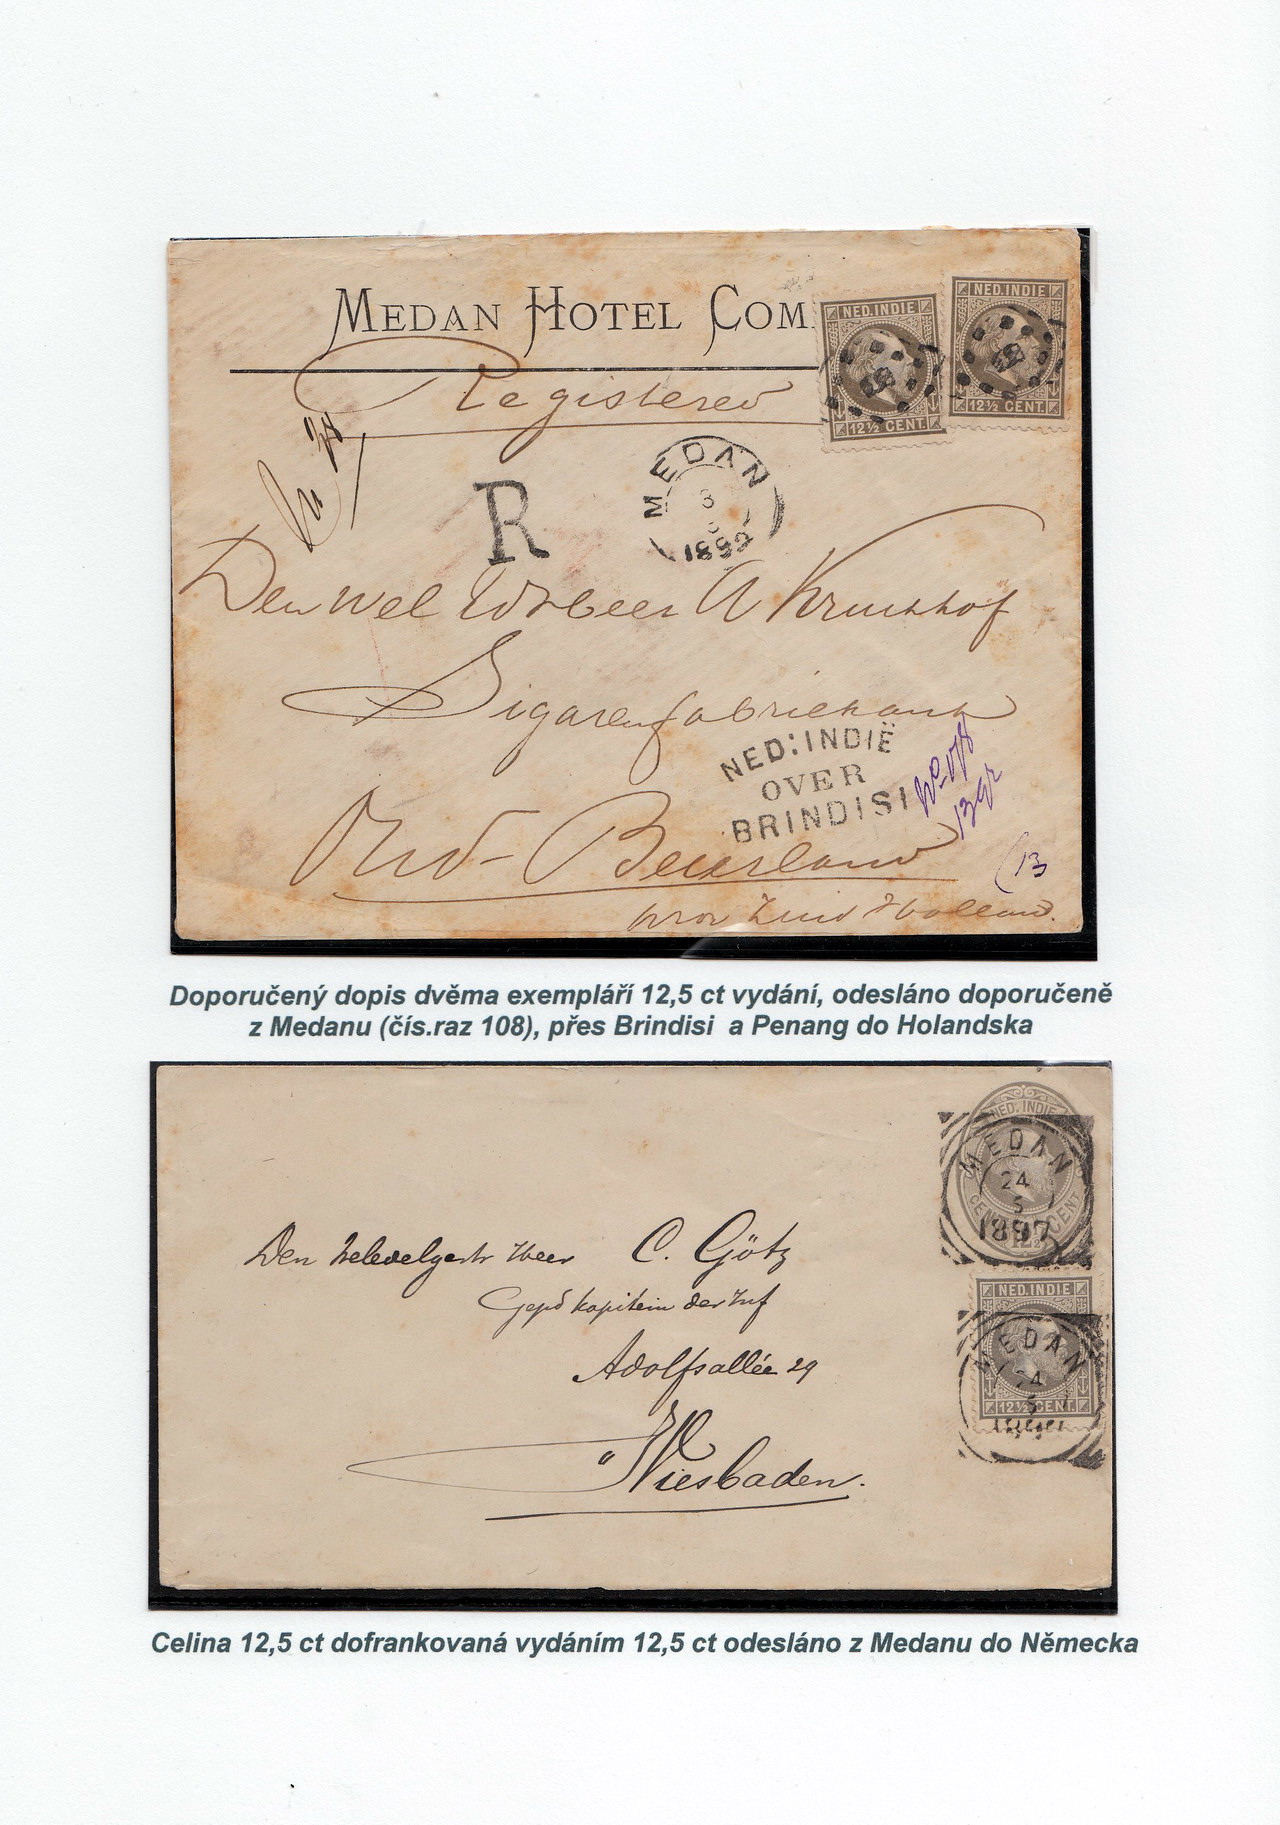 MEDAN HOTEL COM
NED. INDIE
12½ CENT.
NED. INDIE
12½ CENT.
Registered
R
MEDAN
3
1892
Den Wel Ed Heer A Kruithof
Sigarenfabriekant
NED: INDIË
OVER
BRINDISI
No 178
13 gr
13
Oud-Beierland
prov Zuid Holland.
Doporučený dopis dvěma exempláří 12,5 ct vydání, odesláno doporučeně
z Medanu (čís.raz 108), přes Brindisi a Penang do Holandska
NED. INDIE
MEDAN
24
5
1897
CENT
12½
CENT
Den Heer C. Götz
Gepd kapitein der Inf
Adolfsallée 29
Wiesbaden.
NED. INDIE
MEDAN
24
5
12½ CENT.
Celina 12,5 ct dofrankovaná vydáním 12,5 ct odesláno z Medanu do Německa